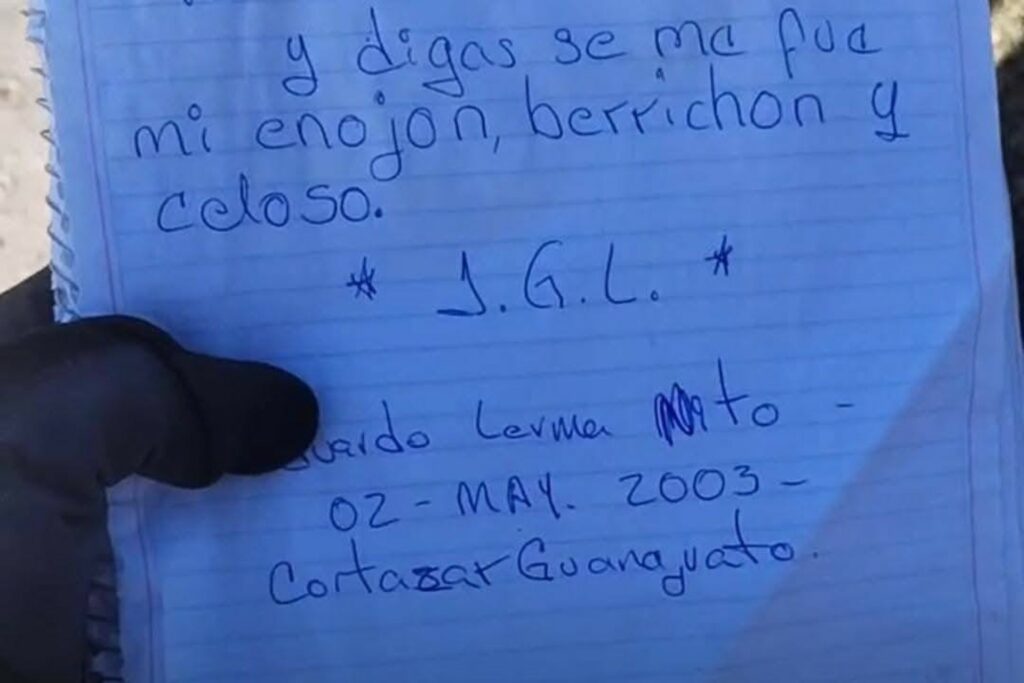 y digas se me fue
mi enojon, berrichon y
celoso.
* J.G.L. *
uardo Lerma -
02 - MAY. 2003 -
Cortazar Guanajuato.